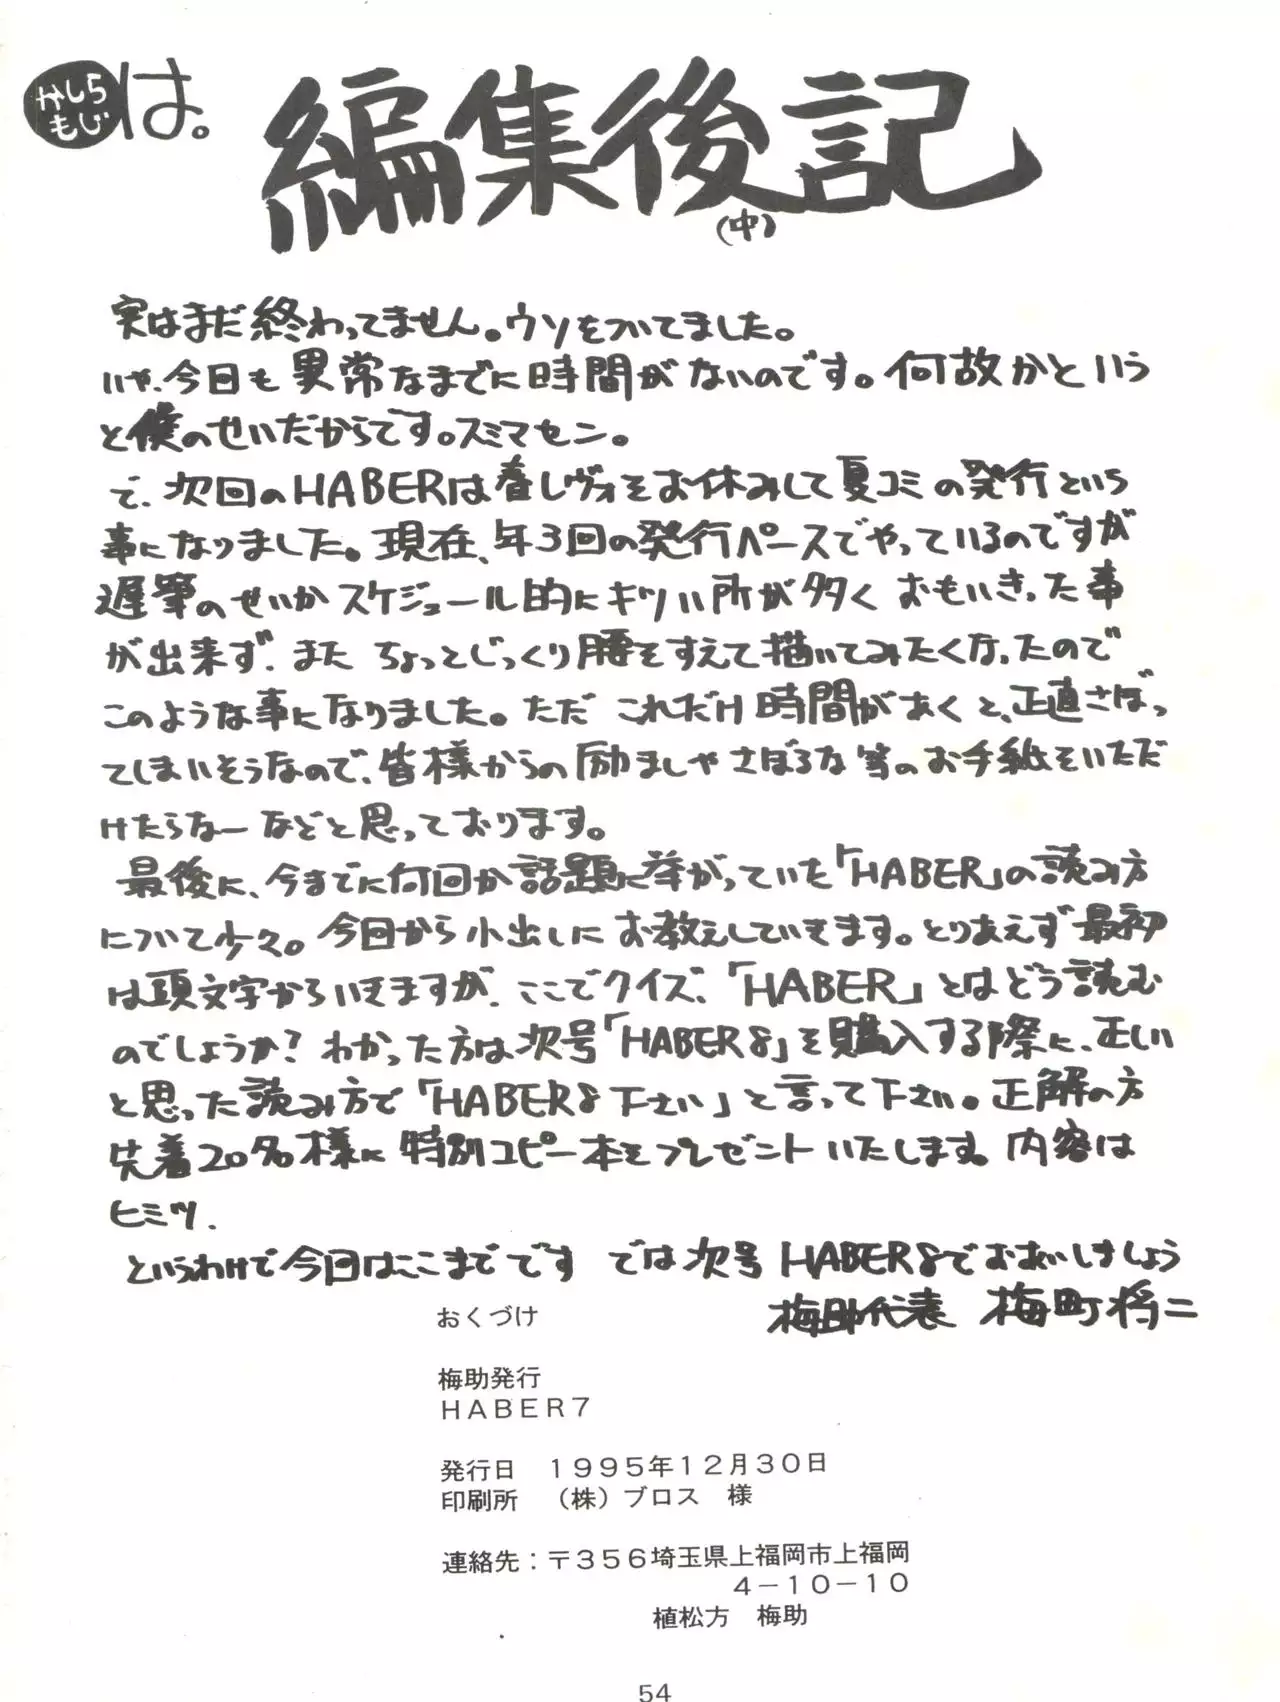 かしら
もじ は。
編集後記
(中)
実はまだ終わってません。ウソをついてました。
いや、今日も異常なまでに時間がないのです。何故かという
と僕のせいだからです。スミマセン。
で、次回のHABERは春レヴォをお休みして夏コミの発行という
事になりました。現在、年3回の発行ペースでやっているのですが
遅筆のせいかスケジュール的にキツい所が多く おもいきった事
が出来ず、また ちょっとじっくり腰をすえて描いてみたくなったので
このような事になりました。ただ これだけ時間があくと、正直さぼっ
てしまいそうなので、皆様からの励ましやさぼるな等のお手紙をいただ
けたらなー などと思っております。
最後に、今までに何回か話題に挙がっていた「HABER」の読み方
について少々。今回から小出しにお教えしていきます。とりあえず最初
は頭文字からいきますが、ここでクイズ、「HABER」とはどう読む
のでしょうか？わかった方は次号「HABER8」を購入する際に、正しい
と思った読み方で「HABER8下さい」と言って下さい。正解の方
先着20名様に特別コピー本をプレゼントいたします。内容は
ヒミツ.
というわけで今回はここまでです では次号HABER8でお会いしましょう
梅助代表 梅町将二
おくづけ
梅助発行
ＨＡＢＥＲ７
発行日　１９９５年１２月３０日
印刷所　（株）ブロス　様
連絡先：〒３５６埼玉県上福岡市上福岡
４－１０－１０
植松方　梅助
54